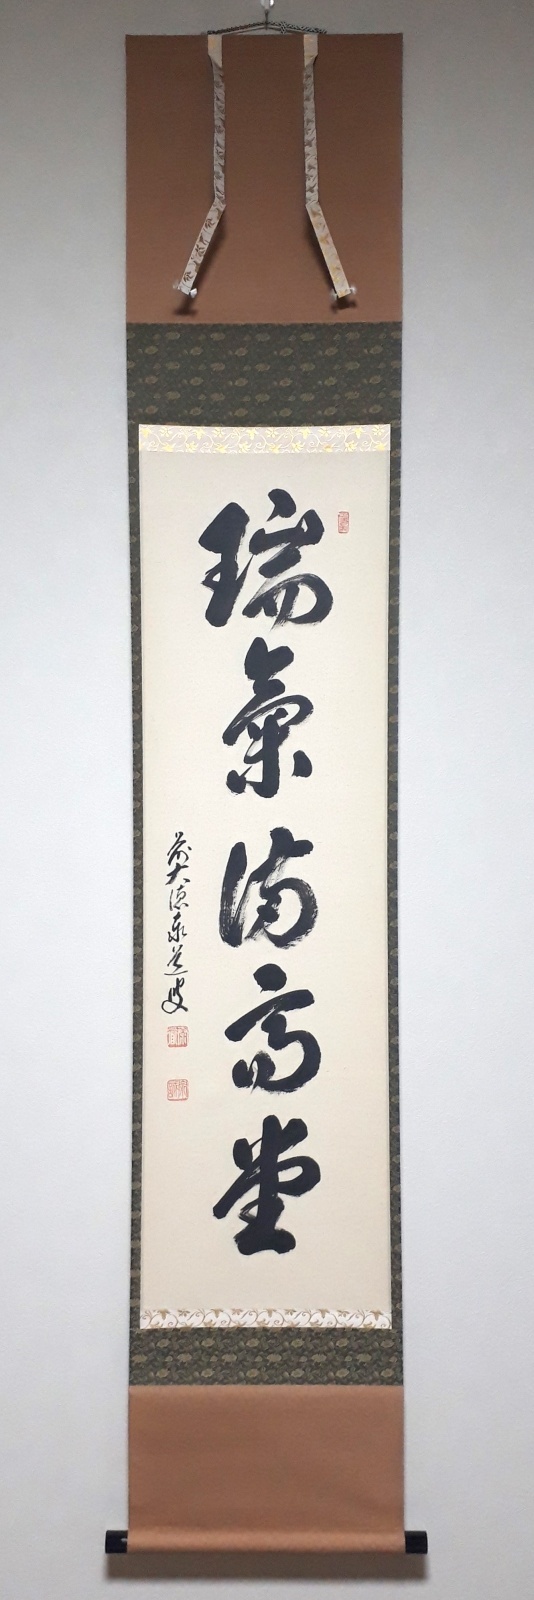 瑞氣満高堂
前大徳泰道叟